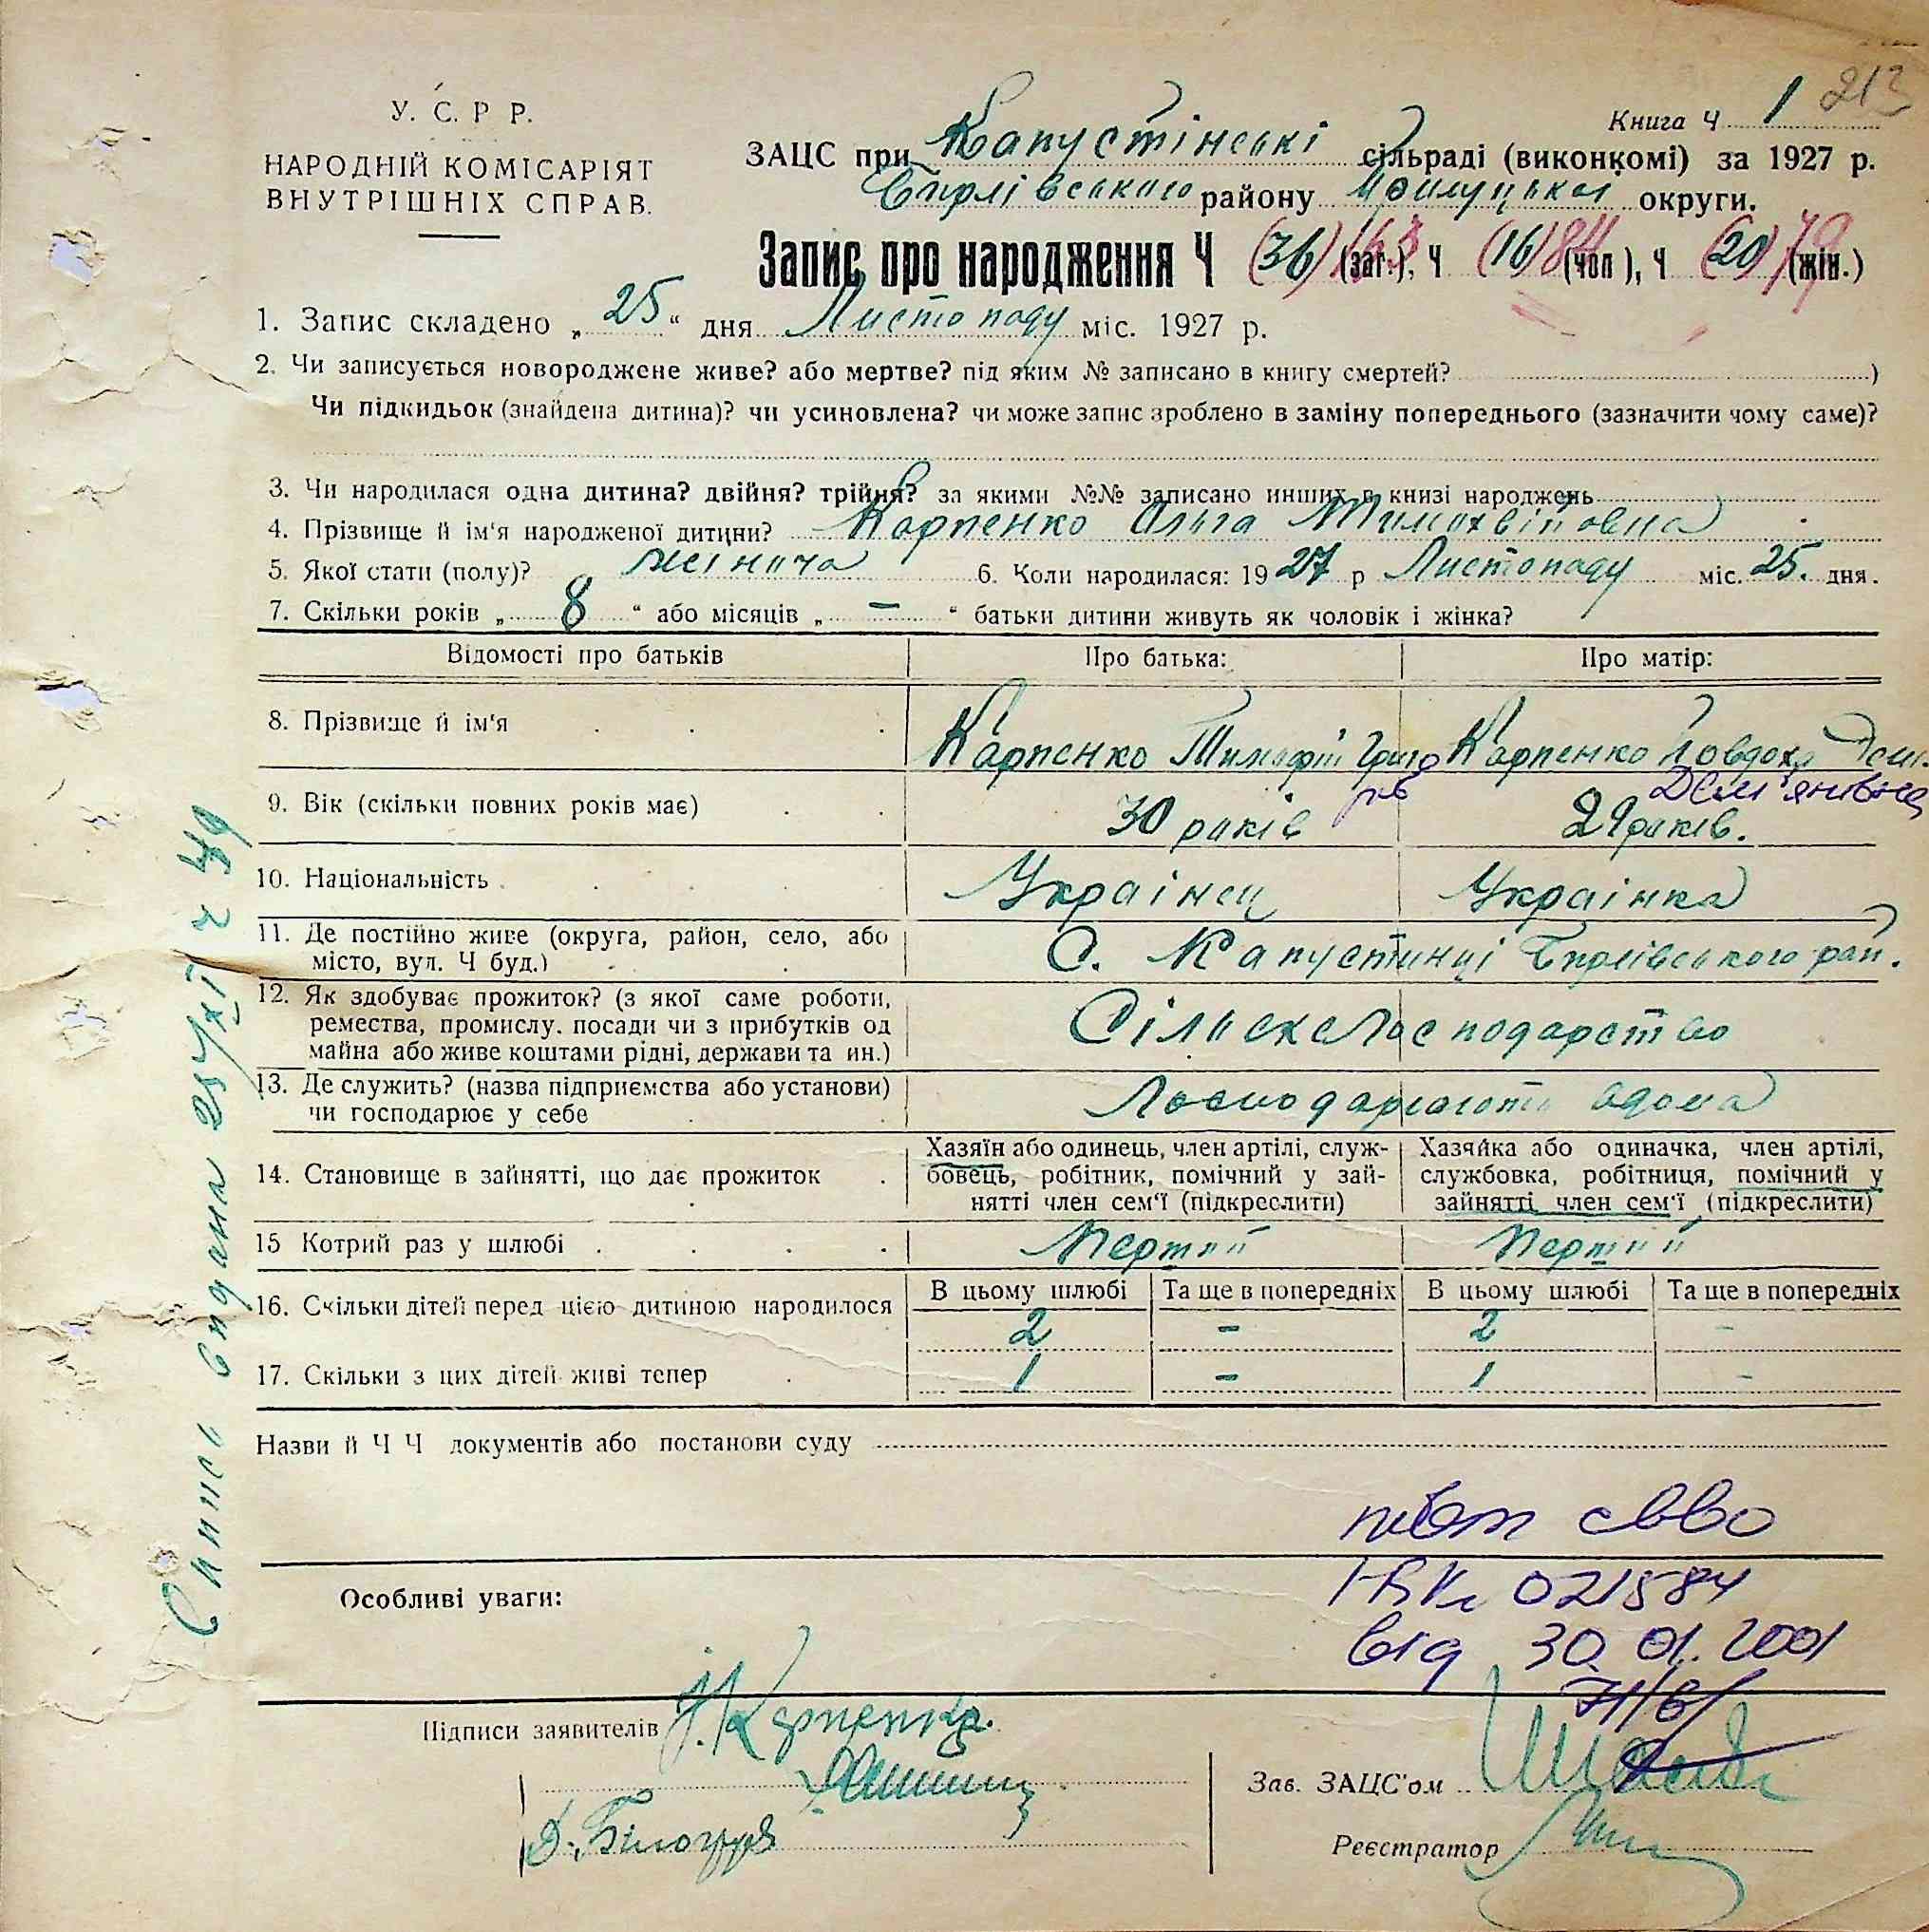 213
У. С. Р. Р.
НАРОДНІЙ КОМІСАРІЯТ
ВНУТРІШНІХ СПРАВ.
Книга Ч 1
ЗАЦС при Капустінські сільраді (виконкомі) за 1927 р.
району Прилуцької округи.
Запис про народження Ч (36) 163 (заг.), Ч (16) 84 (чол), Ч (20) 79 (жін.)
1. Запис складено „ 25 “ дня Листопаду міс. 1927 р.
2. Чи записується новороджене живе? або мертве? під яким № записано в книгу смертей? )
Чи підкидьок (знайдена дитина)? чи усиновлена? чи може запис зроблено в заміну попереднього (зазначити чому саме)?
3. Чи народилася одна дитина? двійня? трійня? за якими №№ записано инших в книзі народжень
4. Прізвище й ім'я народженої дитини? Карпенко Ольга
5. Якої стати (полу)? жіноча 6. Коли народилася: 1927 р Листопаду міс. 25. дня.
7. Скільки років „ 8 “ або місяців „ — “ батьки дитини живуть як чоловік і жінка?
Відомості про батьків Про батька: Про матір:
8. Прізвище й ім'я Карпенко Тимофій Григо Карпенко Дем.
рів Дем'янівна
9. Вік (скільки повних років має) 30 років 29 років.
10. Національність Украінец Украінка
11. Де постійно живе (округа, район, село, або
місто, вул. Ч буд.) С. Капустинці рай.
12. Як здобуває прожиток? (з якої саме роботи,
ремества, промислу. посади чи з прибутків од
майна або живе коштами рідні, держави та ин.)
13. Де служить? (назва підприємства або установи)
чи господарює у себе Господарюють вдома
14. Становище в зайнятті, що дає прожиток
Хазяїн або одинець, член артілі, служ-
бовець, робітник, помічний у зай-
нятті член сем'ї (підкреслити)
Хазяйка або одиначка, член артілі,
службовка, робітниця, помічний у
зайнятті член сем'ї (підкреслити)
15 Котрий раз у шлюбі Перший Перший
В цьому шлюбі Та ще в попередніх В цьому шлюбі Та ще в попередніх
16. Скільки дітей перед цією дитиною народилося 2 - 2 -
17. Скільки з цих дітей живі тепер 1 - 1 -
Назви й Ч Ч документів або постанови суду
повт св во
021584
Особливі уваги:
від 30.01.2001
Підписи заявителів Карпенко.
Д. Білогруд
Зав. ЗАЦС'ом
Реєстратор
видана 25/XI ч 49